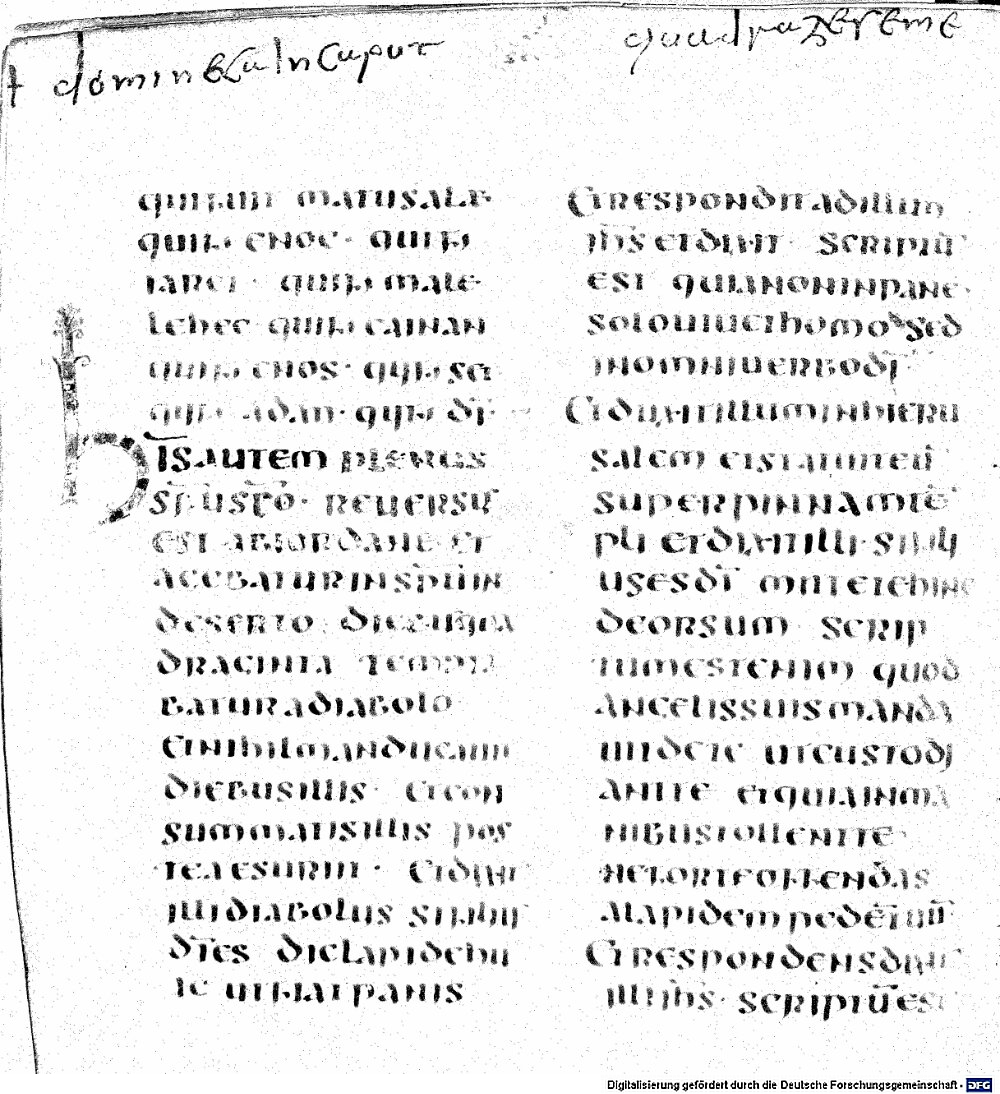 + dominica in caput quadragesime
qui fuit matusale
qui fuit enoc · qui fuit
iared · qui fuit male
lehec qui fuit cainan
qui fuit enos · qui fuit set
qui fuit adam · qui fuit dī
hīs autem plenus
spū stō · reuersus
est ab iordane et
agebatur in spū in
deserto diebus quadra
draginta tempta
batur a diabolo
Et nihil manducauit
diebus illis · et con
summatis illis pos
tea esuriit · Et dixit
illi diabolus si filius
dī es dic lapide hu
ic ut fiat panis
Et respondit ad illum
ihs et dixit scriptū
est quia non in pane
solo uiuet homo sed
in omni uerbo dī
Et duxit illum in hieru
salem et statuit eū
super pinnam tē
pli et dixit illi · si fili
us es dī mitte te hinc
deorsum scrip
tum est enim quod
angelis suis manda
uit de te ut custodi
ant te et quia in ma
nibus tollent te
ne forte offendas
ad lapidem pedē tuū
Et respondens dixit
illi ihs · scriptū est
Digitalisierung gefördert durch die Deutsche Forschungsgemeinschaft - DFG